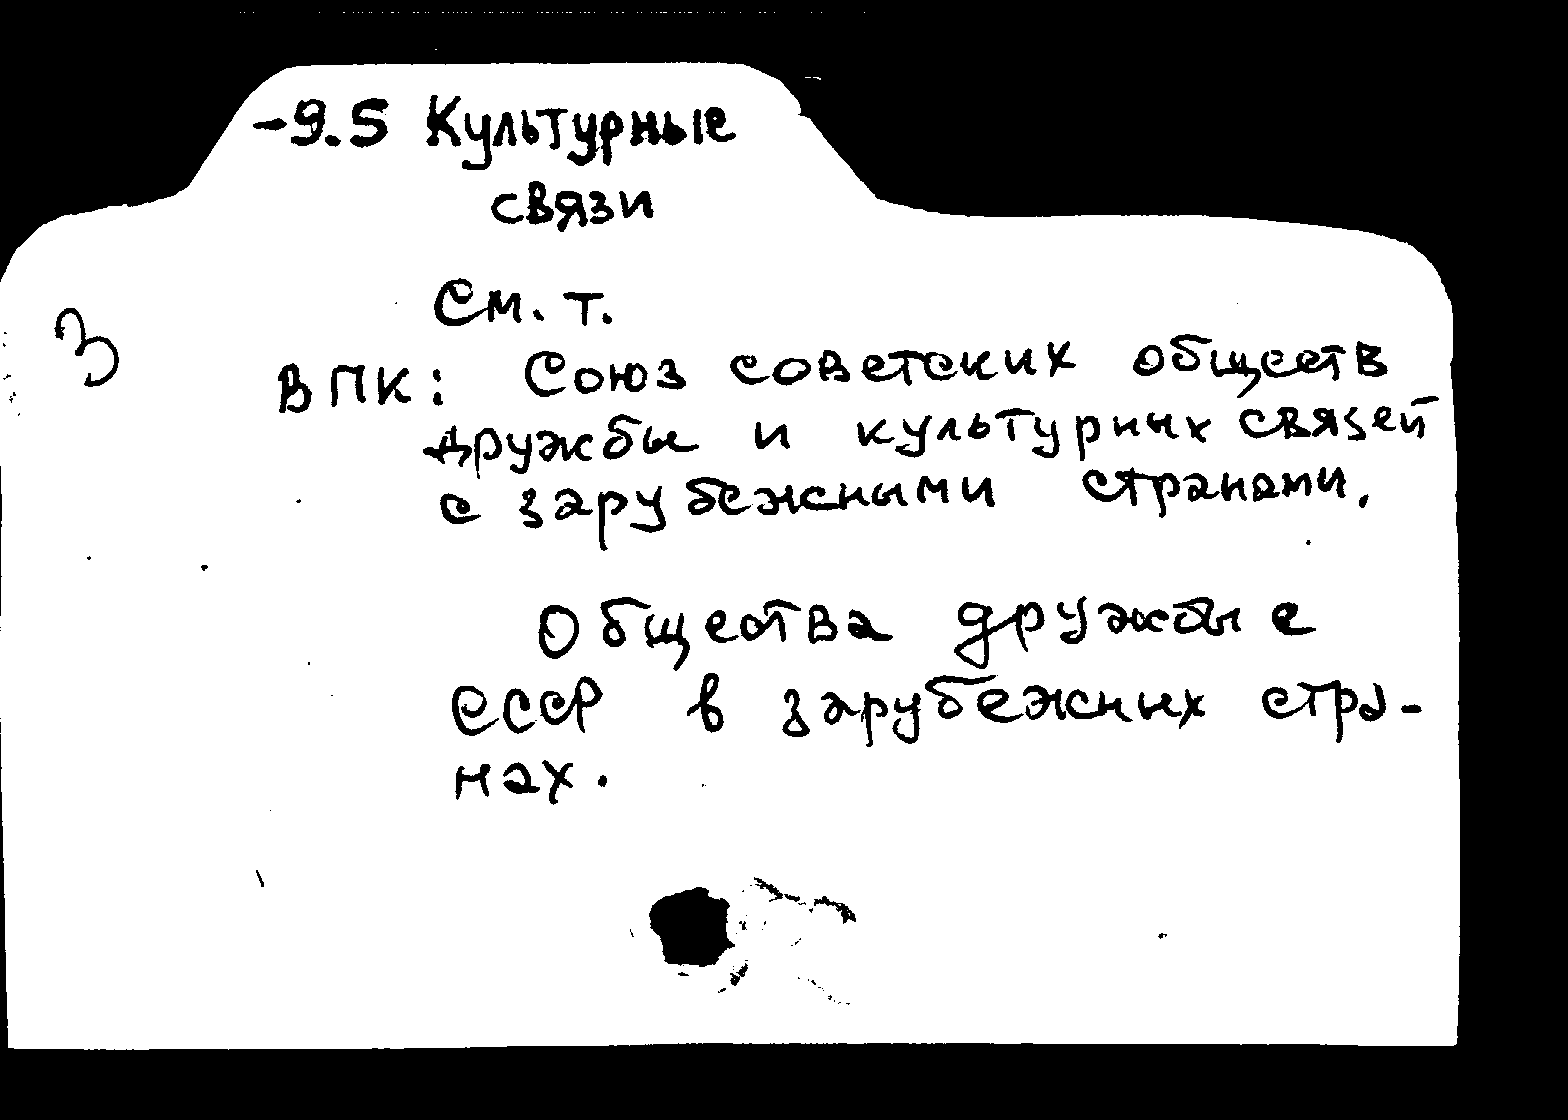 -9.5 Культурные
связи
См. т.
3
В ПК: Союз советских обществ
дружбы и культурных связей
с зарубежными странами.
Общества дружбы с
СССР в зарубежных стра-
нах.